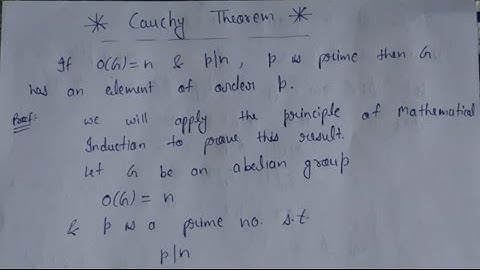 * Cauchy Theorem *
If O(G) = n & p|n, p is prime then G
has an element of order p.
Proof: we will apply the principle of Mathematical
Induction to prove this result.
Let G be an abelian group
O(G) = n
& p is a prime no. s.t.
p|n